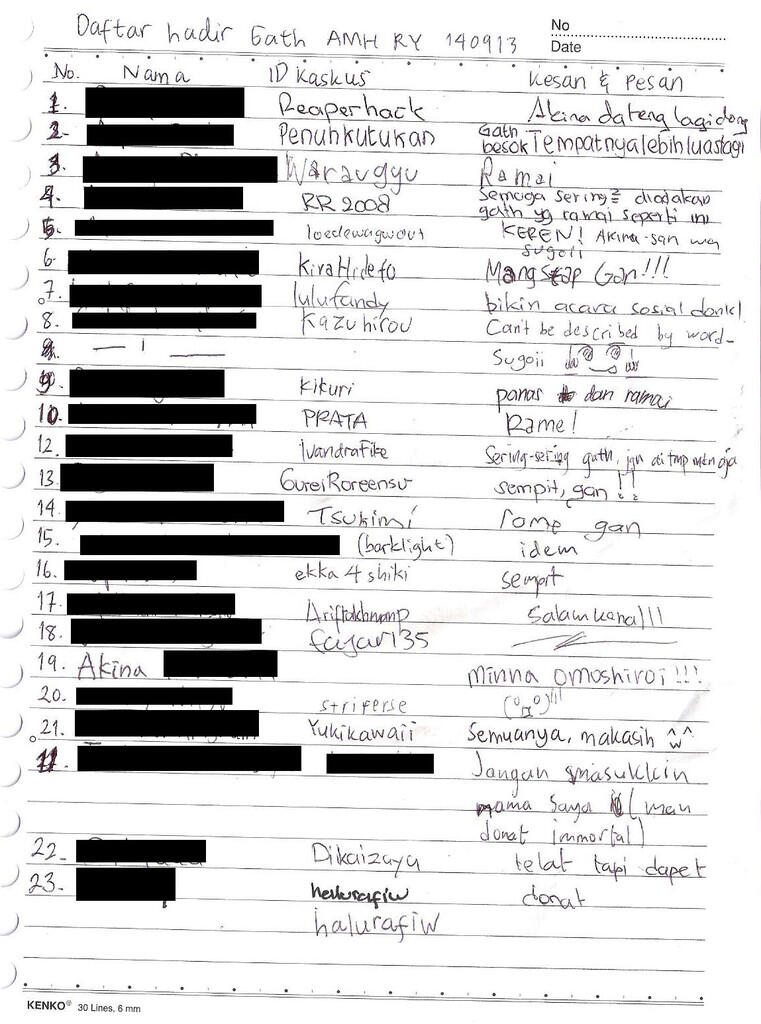 Daftar hadir Gath AMH RY 140913
No
Date
No. Nama ID Kaskus Kesan & Pesan
1. Reaperhack Akina dateng lagi dong
2. Penuhkutukan Gath besok Tempatnya lebih luas lagi
3. Waraugyu Ramai
4. RR2008 Semoga sering2 diadakan
gath yg ramai seperti ini
5. KEREN! Akina-san wa
sugoii
6. KiraHideto Mangstap Gan!!!
7. lulufandy bikin acara sosial donk!
8. Kazuhirou Can't be described by word-
Sugoii
9. Kikuri panas dan ramai
10. PRATA Rame!
12. ivandrafike Sering-sering gath,
13. GureiRoreensu sempit, gan !!
14. Tsukimi rame gan
15. (barklight) idem
16. ekka4shiki sempit
17. Salam kenal!!!
18. fajar135
19. Akina Minna omoshiroi!!!
20. striferse
21. Yukikawaii Semuanya, makasih ^w^
11. Jangan masukkin
nama saya (man
donat immortal)
22. Dikaizaya telat tapi dapet
23. halurafiw donat
halurafiw
KENKO® 30 Lines, 6 mm